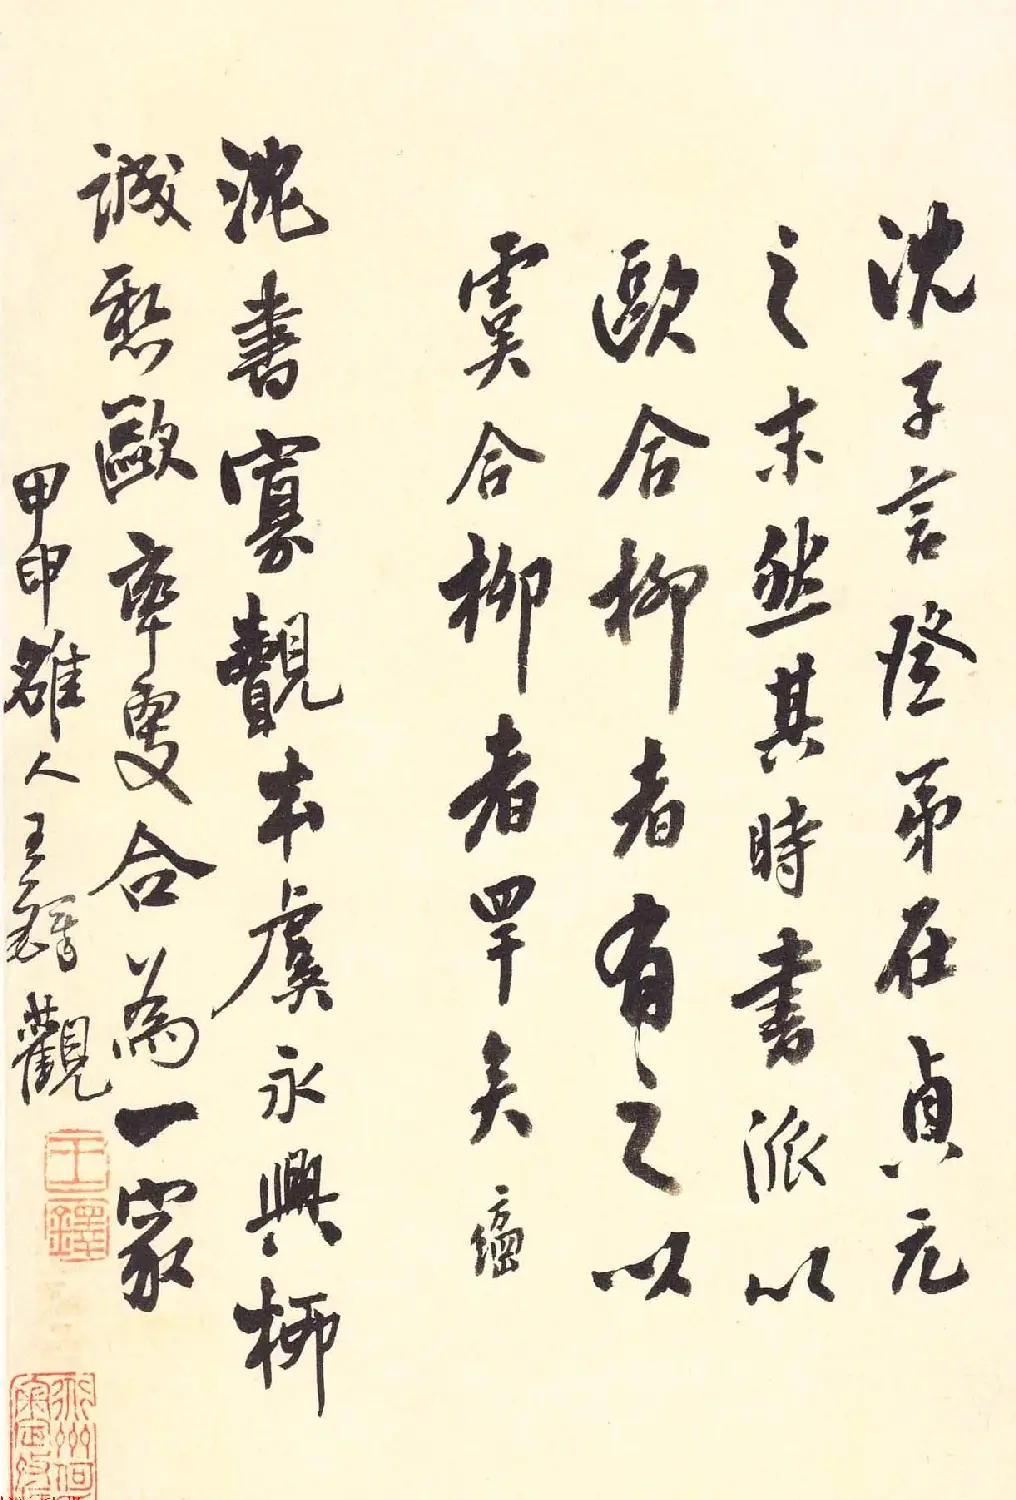 沈子言登第在貞元
之末然其時書派以
歐合柳者有之以
虞合柳者罕矣
沈書寡覿本虞永興柳
誠懸歐率更合為一家
甲申雒人王鐸觀
王鐸